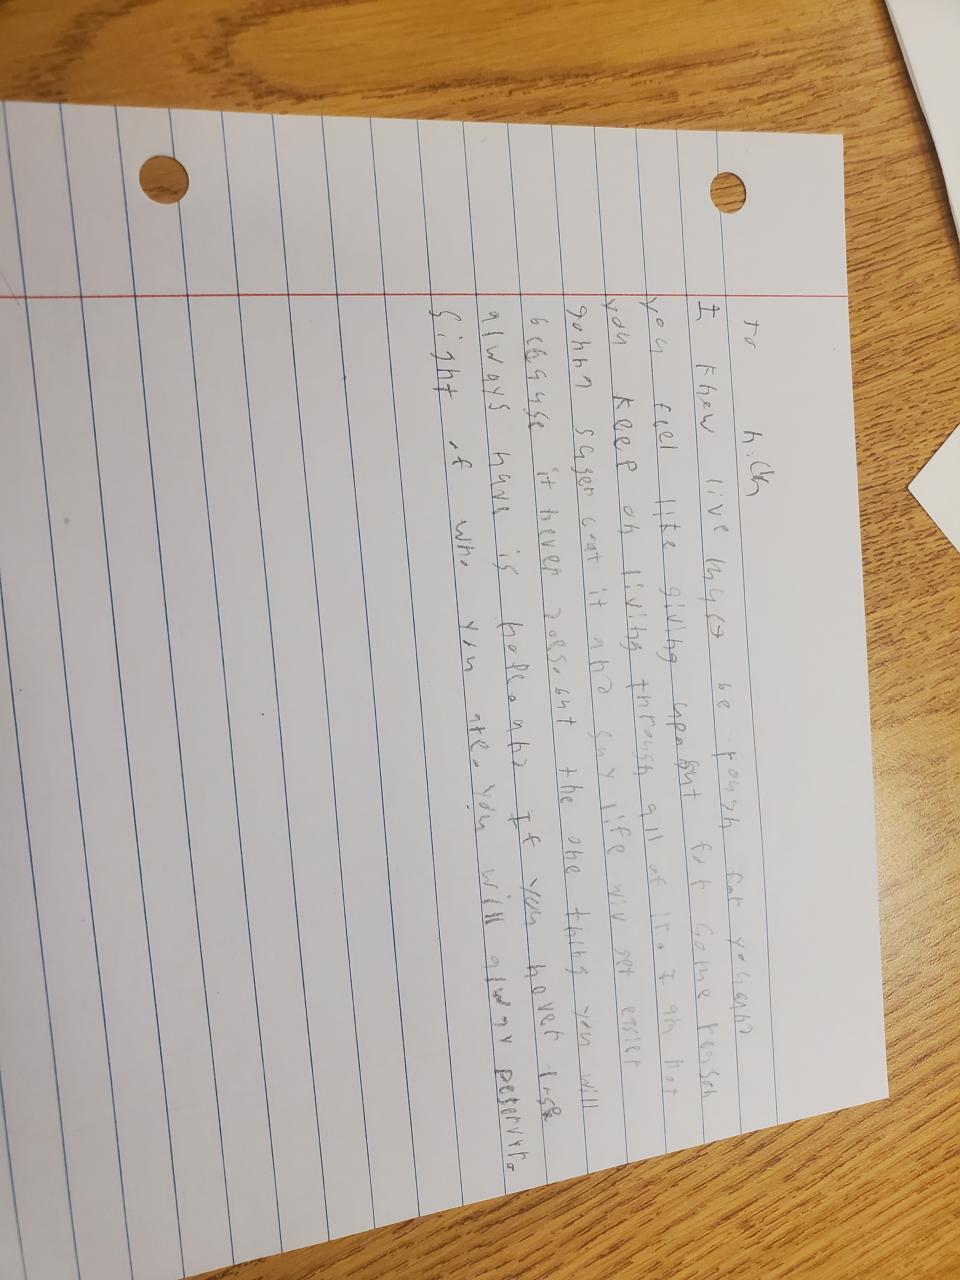 To
I know live be rough for you and
you feel like giving up. but for some reason
you keep on living through all of it. I am not
gonna suger coat it and say life wiv get easier
because it never does. but the one thing you will
always have is hope. and If you never lose
sight of who you are. you will alway